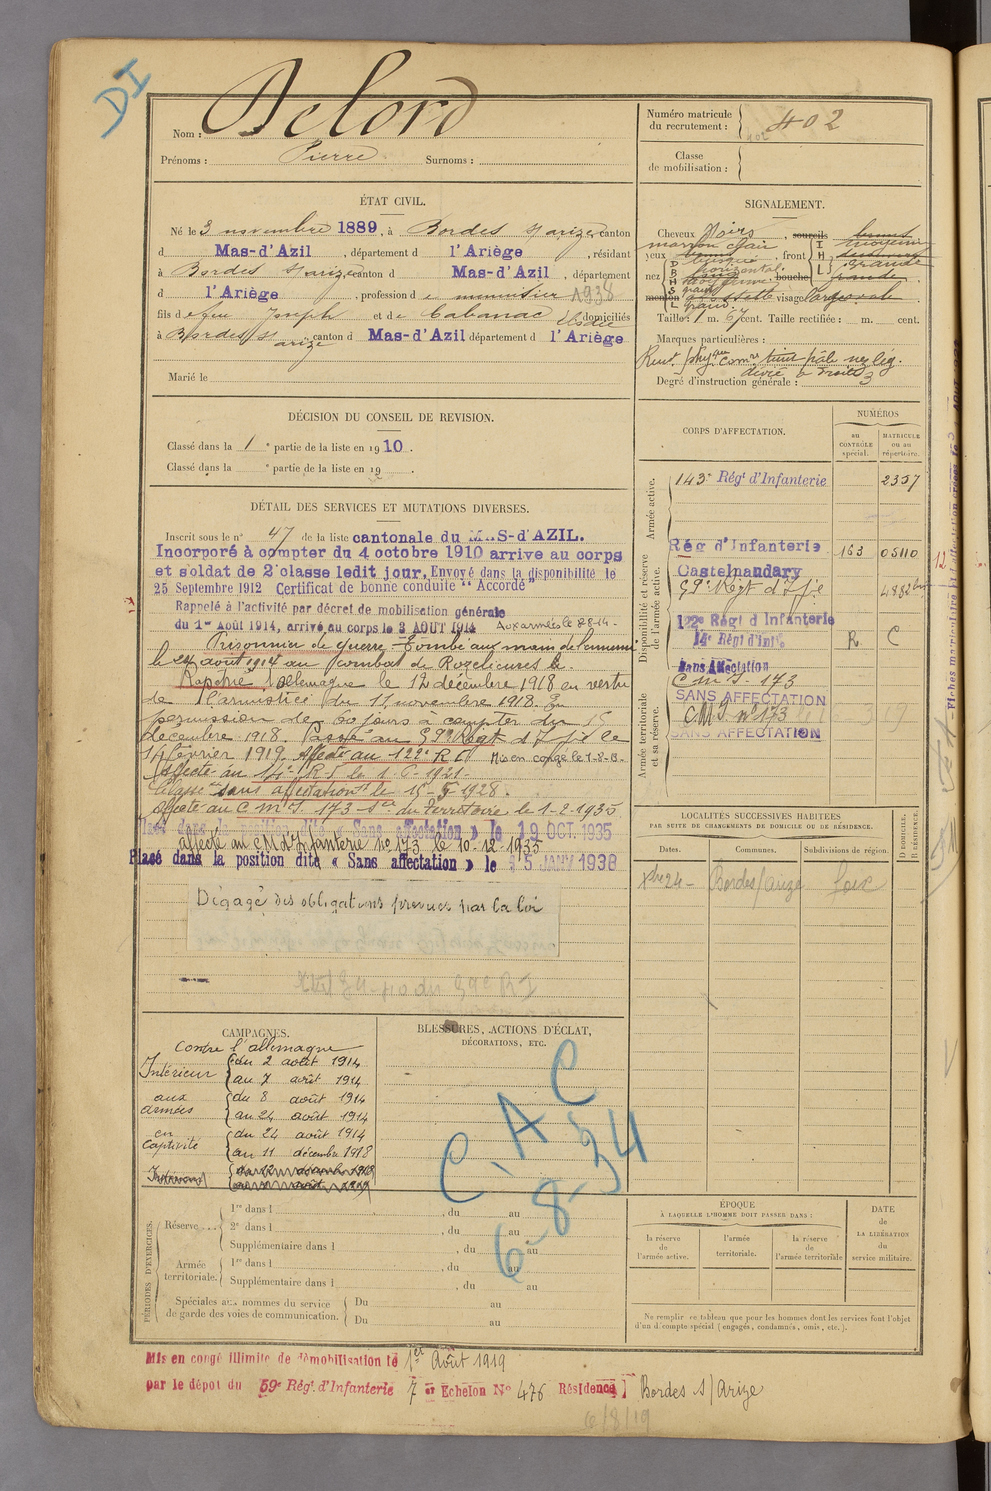 DI
Nom : Delord
Prénoms : Pierre Surnoms :
Numéro matricule du recrutement : 402
Classe de mobilisation :
ÉTAT CIVIL.
Né le 3 novembre 1889, à Bordes s/arize, canton
d Mas-d'Azil, département d l'Ariège, résidant
à Bordes s/arize canton d Mas-d'Azil, département
d l'Ariège, profession de menuisier 1938
fils de feu Joseph et de Cabanac Elodie domiciliés
à Bordes s/ arize canton d Mas-d'Azil département d l'Ariège
Marié le
SIGNALEMENT.
Cheveux Noirs, sourcils
marron clair
yeux, front moyenne
nez horizontal, bouche grande
menton visage
Taille : 1 m. 67 cent. Taille rectifiée : m. cent.
Marques particulières :
Degré d'instruction générale : 3
DÉCISION DU CONSEIL DE REVISION.
Classé dans la 1e partie de la liste en 1910.
Classé dans la e partie de la liste en 19 .
DÉTAIL DES SERVICES ET MUTATIONS DIVERSES.
Inscrit sous le n° 47 de la liste cantonale du MAS-d'AZIL.
Incorporé à compter du 4 octobre 1910 arrive au corps
et soldat de 2e classe ledit jour, Envoyé dans la disponibilité le
25 Septembre 1912 Certificat de bonne conduite "Accordé"
Rappelé à l'activité par décret de mobilisation générale
du 1er Août 1914, arrivé au corps le 3 AOUT 1914 Aux armées le 8-8-14-
Prisonnier de guerre - Tombé aux mains de l'ennemi
le 24 août 1914 au combat de Rozelieures
Rapatrié d'allemagne le 12 décembre 1918 en vertu
de l'armistice du 11 novembre 1918. En
permission de 60 jours à compter du 15
décembre 1918. Passé au 59e Régt d'Infie le
14 février 1919. Affecté au 122e R I Mis en congé le 1-8-19-
Affecté au 14e R I le 1-6-1921-
Classé sans affectation le 15-5-1928.
Affecté au C M I 173 Son du Territoire, le 1-2-1935
Placé dans la position dite « Sans affectation » le 19 OCT. 1935
affecté au C M d'Infanterie no 173 le 10-12-1935
Placé dans la position dite « Sans affectation » le 15 JANV 1938
Dégagé des obligations prévues par la loi
CORPS D'AFFECTATION.
NUMÉROS
au CONTRÔLE spécial.
MATRICULE ou au répertoire.
Armée active.
143e Régt d'Infanterie 2357
Disponibilité et réserve de l'armée active.
Rég d'Infanterie 163 05110
Castelnaudary
59e Régt d'Infie 4882 bis
122e Régt d'Infanterie
14e Régt d'Infie R. C
Sans Affectation
Armée territoriale et sa réserve.
C M I - 173
SANS AFFECTATION
C.M.I. no 173
SANS AFFECTATION
LOCALITÉS SUCCESSIVES HABITÉES
PAR SUITE DE CHANGEMENTS DE DOMICILE OU DE RÉSIDENCE.
Dates. Communes. Subdivisions de région. D DOMICILE. R RÉSIDENCE.
Xbre 24 - Bordes s/arize Foix
CAMPAGNES.
Contre l'allemagne
Intérieur du 2 août 1914
au 7 août 1914
aux armées du 8 août 1914
au 24 août 1914
en captivité du 24 août 1914
au 11 décembre 1918
Intérieur du 12 décembre 1918
au août 1919
BLESSURES, ACTIONS D'ÉCLAT,
DÉCORATIONS, ETC.
C A C
6-8-34
PÉRIODES D'EXERCICES.
Réserve ... 1re dans l , du au
2e dans l , du au
Supplémentaire dans l , du au
Armée territoriale. 1re dans l , du au
Supplémentaire dans l , du au
Spéciales aux hommes du service de garde des voies de communication. Du au
Du au
ÉPOQUE
À LAQUELLE L'HOMME DOIT PASSER DANS :
la réserve de l'armée active.
l'armée territoriale.
la réserve de l'armée territoriale
DATE de LA LIBÉRATION du service militaire.
Ne remplir ce tableau que pour les hommes dont les services font l'objet
d'un décompte spécial (engagés, condamnés, omis, etc.).
Mis en congé illimité de démobilisation le 1er Août 1919
par le dépôt du 59e Régt d'Infanterie 7e Echelon No 476 Résidence Bordes s/Arize
6/8/19